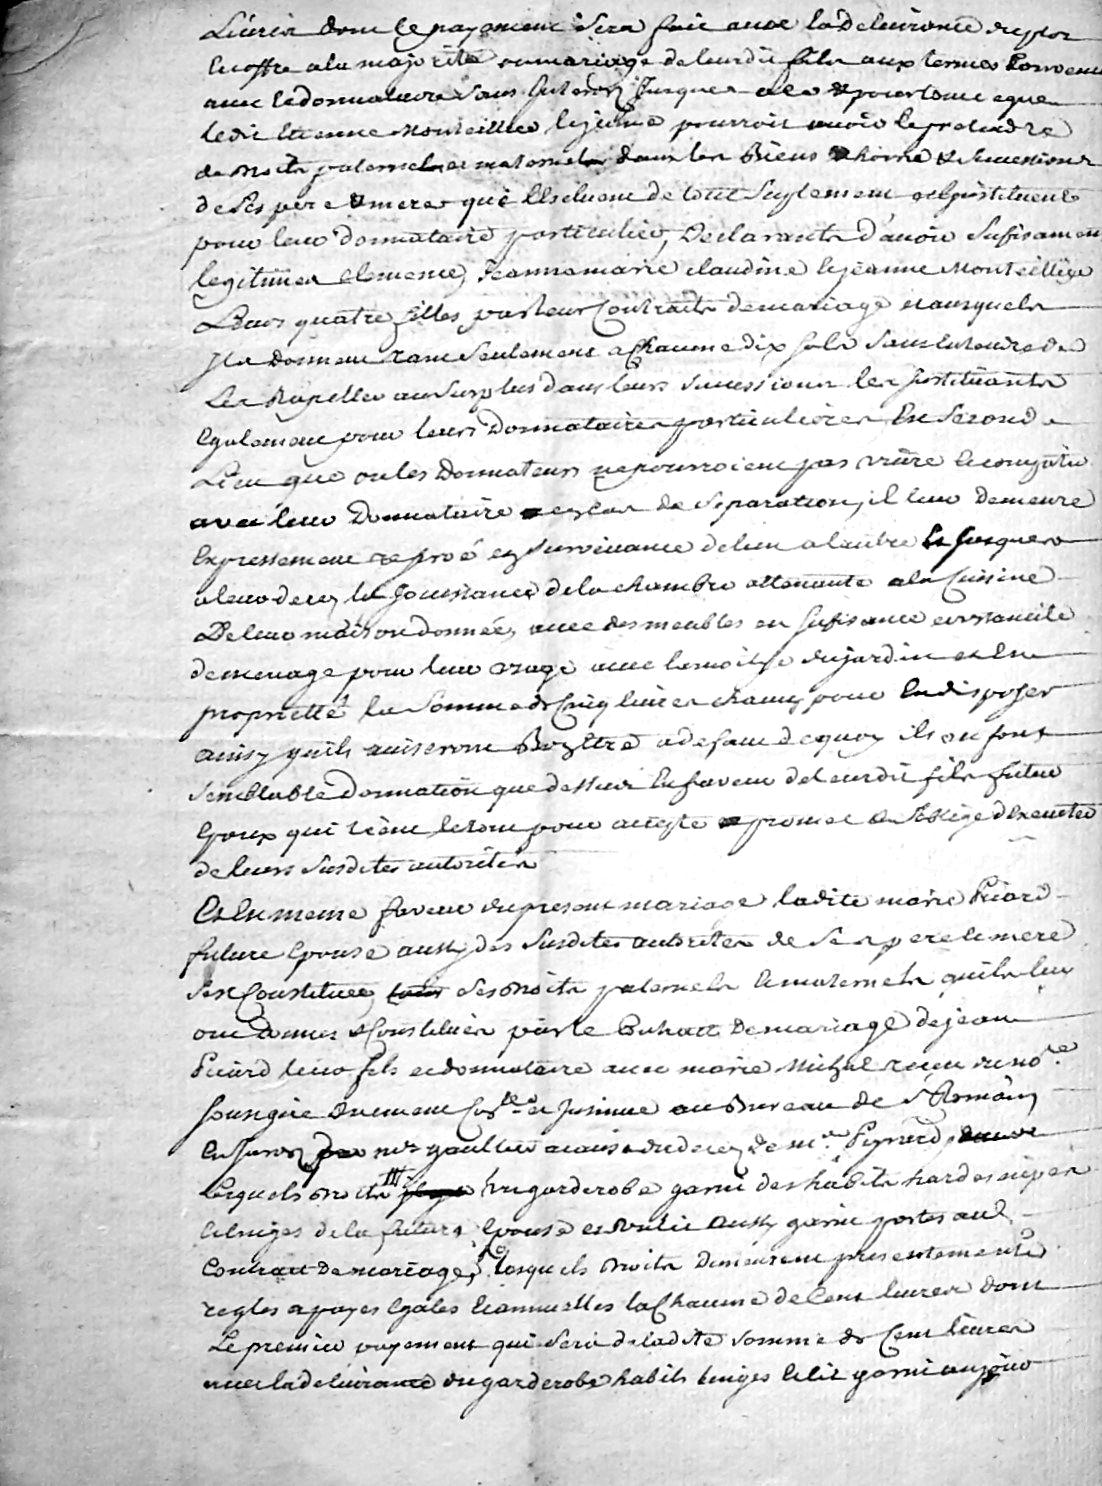 Livres dont le payement sera fait avec la delivrance du
le coffre a la majorité ou mariage de leurdit fils aux termes convenu
avec le donnataire sans interest jusques a ce & pour tout ce que
ledit Etienne Monteillier le jeune pourroit avoir le pretendre
de droits paternels et maternels dans les Biens & successions
de ses pere & mere qui l'Excluent de tout suplement et l'instituent
pour leur donnataire particulier, Declarants d'avoir sufisament
legitimer Clemence, Jeanne marie claudine le jeanne Monteillier
Leurs quatre filles par leur Contraits de mariage et auxquels
Ils donnent tant seulement a Chacune dix sols sans entendre
Les Rapeller au surplus dans leurs successions les instituants
Egalement pour leurs Donnataires particulieres En second
Lieu que ou les Donnateurs ne pourroient pas vivre
avec leur Donnataire en cas de separation, il leur demeure
Expressement reservé en survivance de l'un a l'autre Et jusques
a leur deces la jouissance de la chambre attenante a la Cuisine
De leur maison donnée, avec des meubles en sufisance et
de menage pour leur usage avec la moitié du jardin et En
proprietté la somme de Cinq livres chacun pour En disposer
ainsy quils aviseront Bon Etre a defaut de quoy ils en font
semblable Donnation que dessus En faveur de leurdit fils futur
Epoux qui le tout pour accepté promet & s'oblige d'Executer
de leurs susdites autorités
Et En meme faveur du present mariage ladite marie Picard
future Epouse aussy des susdites autorités de ses pere et mere
s'est Constituée, ses droits paternels et maternels quils luy
ont donnés & Constitués par le Contract de mariage de jean
Picard leur fils et donnataire avec marie Michel reçeu du no.re
soussigné Duement et Insinué au Bureau de St Romain
En par mr gaultier a cause du deces de mr Peyrard
lesquels droits un garderobe garni des habits hardes nipes
et linges de la future Epouse et un lit aussy garni portés aud.
Contract de mariage, lesquels droits demeurent presentement
regles a payes Egales et annuelles la Chacune de Cent livres dont
Le premier payement qui sera de ladite somme de Cent livres
avec la delivrance du garderobe habits linges et lit garni